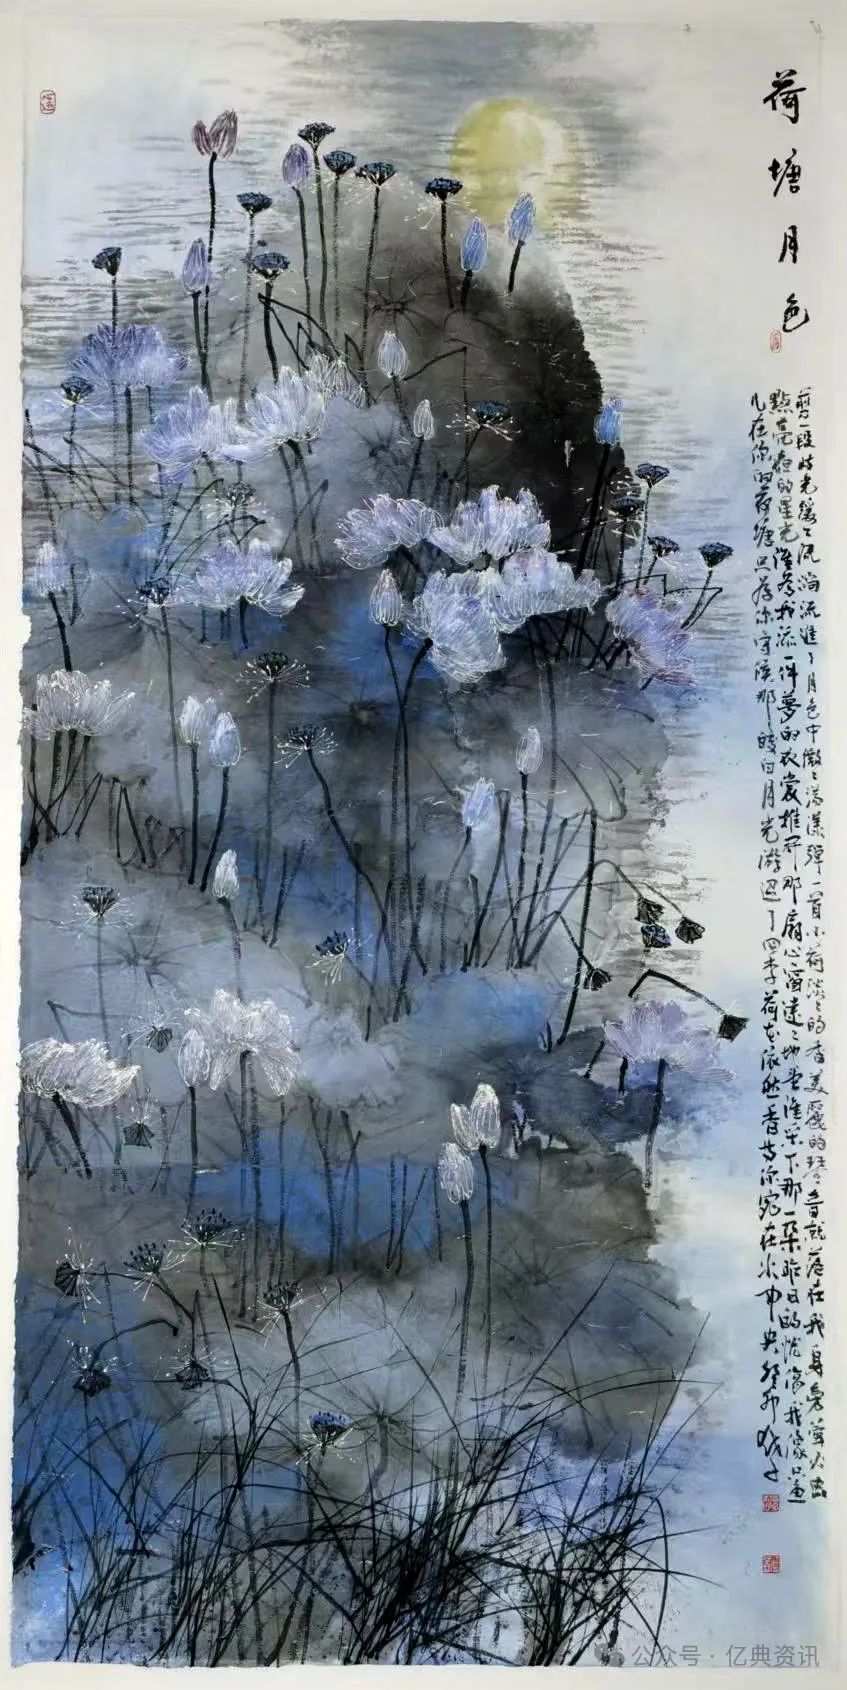 荷塘月色
剪一段时光缓缓流淌流进了月色中微微荡漾弹一首小荷淡淡的香美丽的琴音就落在我身旁萤火虫
點亮夜的星光谁为我添一件梦的衣裳推开那扇心窗远远地看谁采下那一朵昨日的忧伤我像只鱼
儿在你的荷塘只为你守候那皎白月光游过了四季荷花依然香等你宛在水中央癸卯
公众号 · 亿典资讯